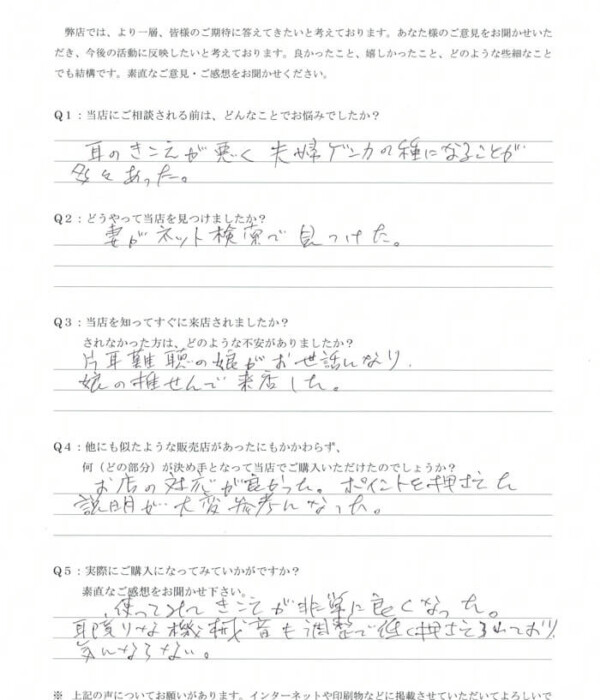 弊店では、より一層、皆様のご期待に答えてきたいと考えております。あなた様のご意見をお聞かせいた
だき、今後の活動に反映したいと考えております。良かったこと、嬉しかったこと、どのような些細なこと
でも結構です。素直なご意見・ご感想をお聞かせください。
Q1：当店にご相談される前は、どんなことでお悩みでしたか？
耳のきこえが悪く 夫婦ゲンカの種になることが
多々あった。
Q2：どうやって当店を見つけましたか？
妻がネット検索で見つけた。
Q3：当店を知ってすぐに来店されましたか？
されなかった方は、どのような不安がありましたか？
片耳難聴の娘がお世話になり、
娘の推せんで来店した。
Q4：他にも似たような販売店があったにもかかわらず、
何（どの部分）が決め手となって当店でご購入いただけたのでしょうか？
お店の対応が良かった。ポイントを押さえた
説明が大変参考になった。
Q5：実際にご購入になってみていかがですか？
素直なご感想をお聞かせ下さい。
使ってみてきこえが非常に良くなった。
耳障りな機械音も調整で低く押さえられており
気にならない。
※ 上記の声についてお願いがあります。インターネットや印刷物などに掲載させていただいてよろしいで